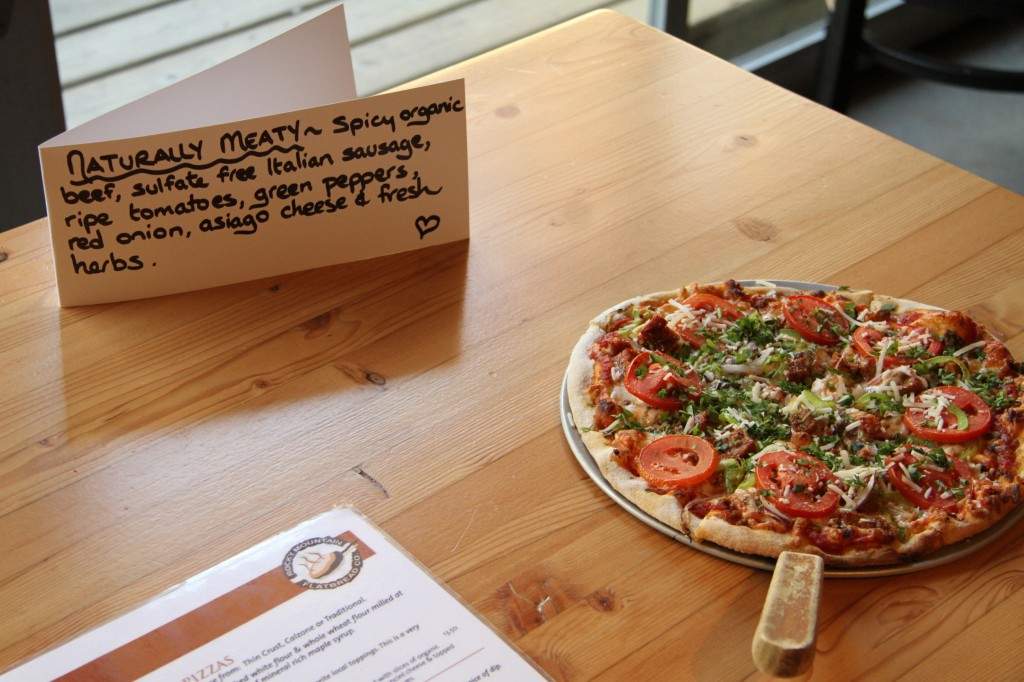 NATURALLY MEATY ~ Spicy organic
beef, sulfate free Italian sausage,
ripe tomatoes, green peppers,
red onion, asiago cheese & fresh
herbs.
ROCKY MOUNTAIN
FLATBREAD CO
PIZZAS
from: Thin Crust, Calzone or Traditional.
white flour & whole wheat flour milled at
mineral rich maple syrup.
local toppings. This is a very
13.50
with slices of organic
cheese & topped
choice of dip.